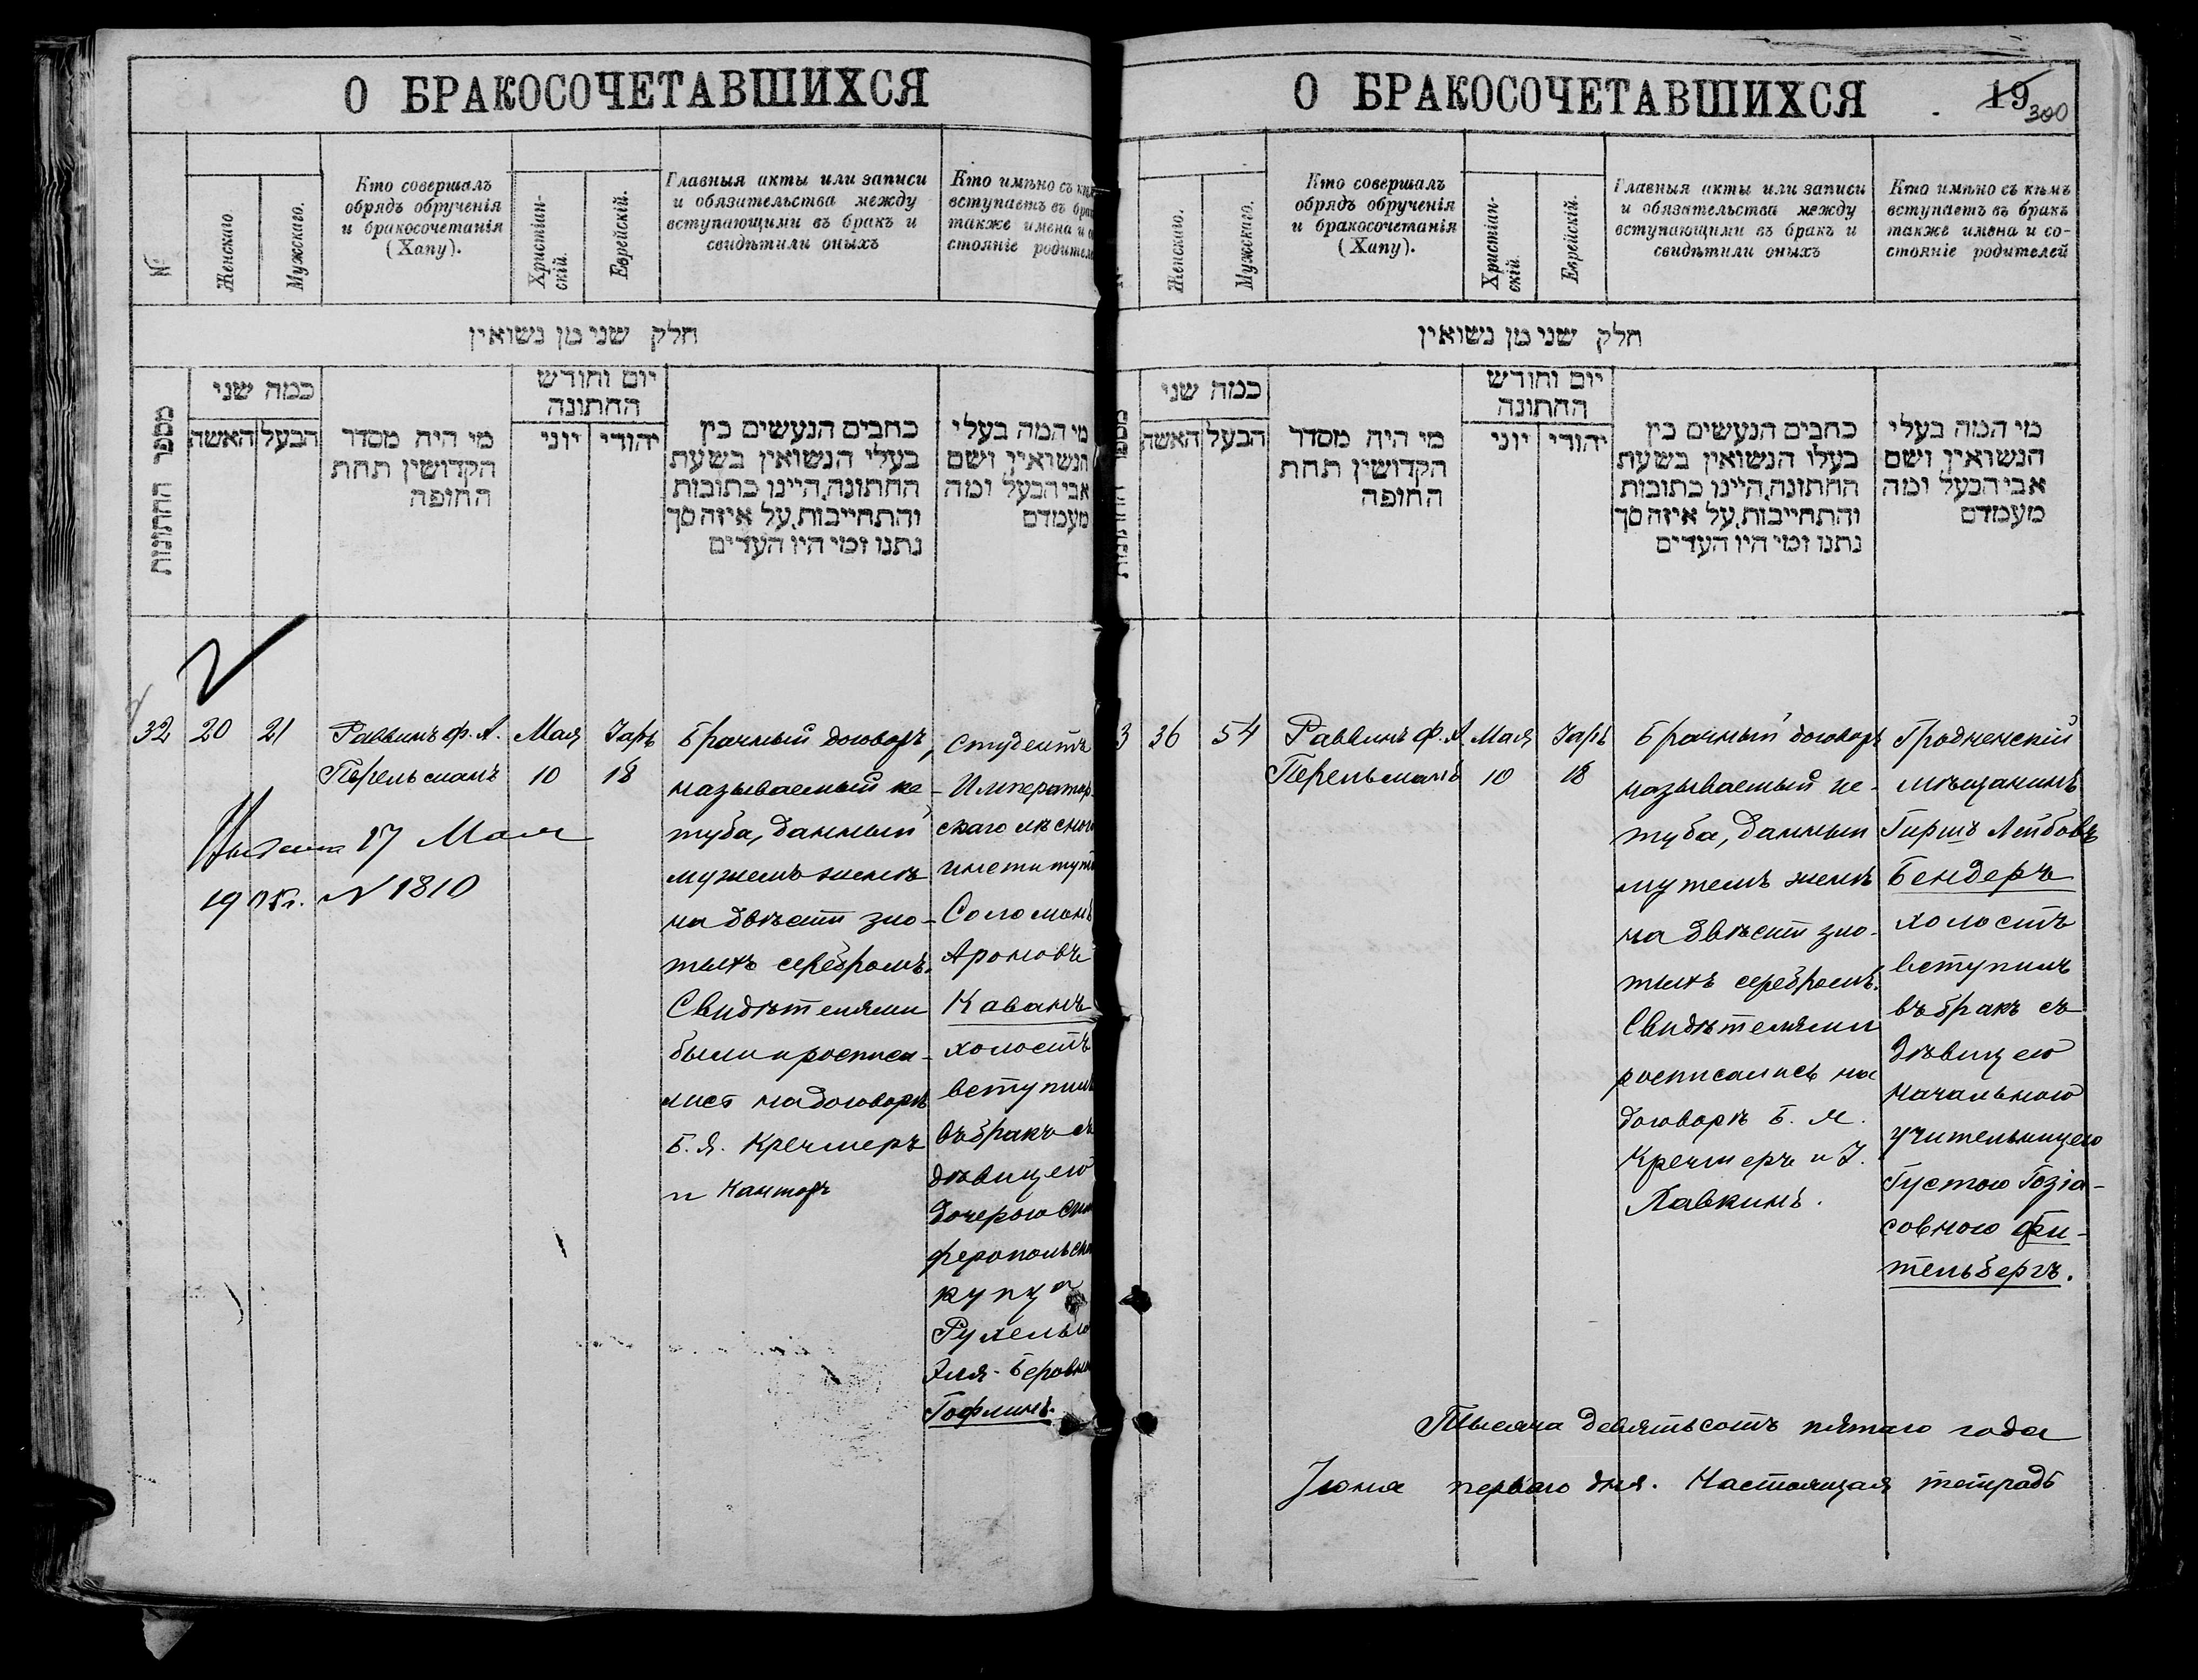 О БРАКОСОЧЕТАВШИХСЯ
№
Женскаго.
Мужскаго.
Кто совершалъ
обрядъ обрученія
и бракосочетанія
(Хапу).
Христіан-
скій.
Еврейскій.
Главныя акты или записи
и обязательства между
вступающими въ бракъ и
свидѣтили оныхъ
Кто имѣно съ
вступаетъ въ
также имена и
стояніе
חלק שני מן נשואין
מספר החתונות
כמה שני
האשה
הבעל
מי היה מסדר
הקדושין תחת
החופה
יום וחודש
החתונה
יוני
יהודי
כתבים הנעשים בין
בעלי הנשואין בשעת
החתונה, היינו כתובות
והתחייבות, על איזה סך
נתנו ומי היו העדים
מי המה בעלי
הנשואין, ושם
אבי הבעל ומה
מעמדם
32
20
21
Раввинъ Ф. А.
Перельманъ
Мая
10
Іаръ
18
Брачный договоръ,
называемый ке-
туба, данный
мужемъ женѣ
на двѣсти зло-
тыхъ серебромъ.
Свидѣтелями
были и росписа-
лись на договорѣ
Б. Я. Кречмеръ
и Канторъ
Студентъ
Император-
скаго лѣсного
института
Соломонъ
Ароновъ
Каванъ
холостъ
вступилъ
въ бракъ съ
дѣвицею
дочерью Сим
феропольск
купца
Рухелью
Эля-Беровн
Гофлинъ.
Выдана 17 Мая
1905г. N 1810
О БРАКОСОЧЕТАВШИХСЯ
19
300
Женскаго.
Мужскаго.
Кто совершалъ
обрядъ обрученія
и бракосочетанія
(Хапу).
Христіан-
скій.
Еврейскій.
Главныя акты или записи
и обязательства между
вступающими въ бракъ и
свидѣтили оныхъ
Кто имѣно съ кѣмъ
вступаетъ въ бракъ
также имена и со-
стояніе родителей
חלק שני מן נשואין
כמה שני
האשה
הבעל
מי היה מסדר
הקדושין תחת
החופה
יום וחודש
החתונה
יוני
יהודי
כתבים הנעשים בין
בעלו הנשואין בשעת
החתונה, היינו כתובות
והתחייבות, על איזה סך
נתנו ומי היו העדים
מי המה בעלי
הנשואין, ושם
אבי הבעל ומה
מעמדם
3
36
54
Раввинъ Ф. А.
Перельманъ
Мая
10
Іаръ
18
Брачный договоръ
называемый ке-
туба, данный
мужемъ женѣ
на двѣсти зло-
тыхъ серебромъ.
Свидѣтелями
росписались на
договорѣ Б. Я.
Кречмеръ и І.
Лавкинъ.
Гродненскій
мѣщанинъ
Гиршъ Лейбовъ
Бендеръ
холостъ
вступилъ
въ бракъ съ
дѣвицею
начальною
учительницею
Густою Гозіа-
совною Фи-
тельбергъ.
Тысяча девятьсотъ пятаго года
Іюня перваго дня. Настоящая тетрадь